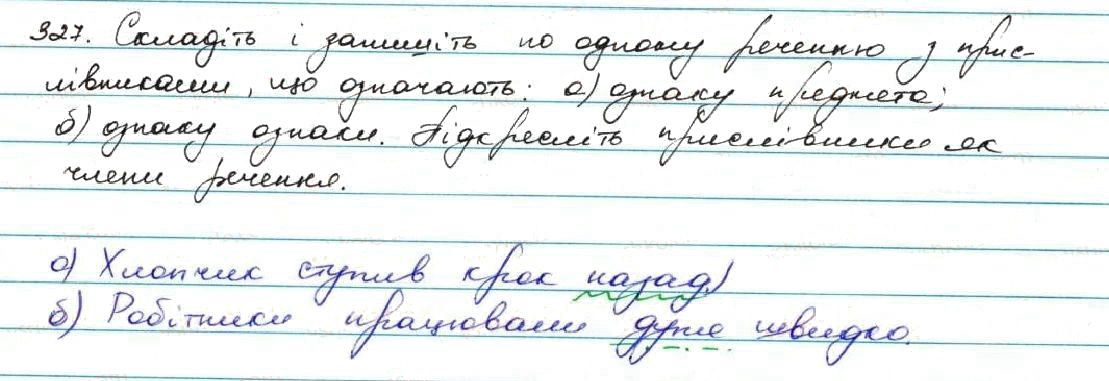 327. Складіть і запишіть по одному реченню з прис-
лівниками, що означають: а) ознаку предмета;
б) ознаку ознаки. Підкресліть прислівники як
члени речення.
а) Хлопчик ступив крок назад.
б) Робітники працювали дуже швидко.